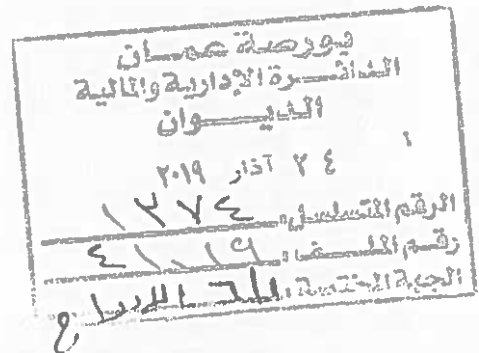 بورصة عمان
الدائرة الإدارية والمالية
الديوان
٢٤ آذار ٢٠١٩
الرقم المتسلسل: ١٣٧٤
رقم الملف: ٤١٠١٩
الجهة المختصة: